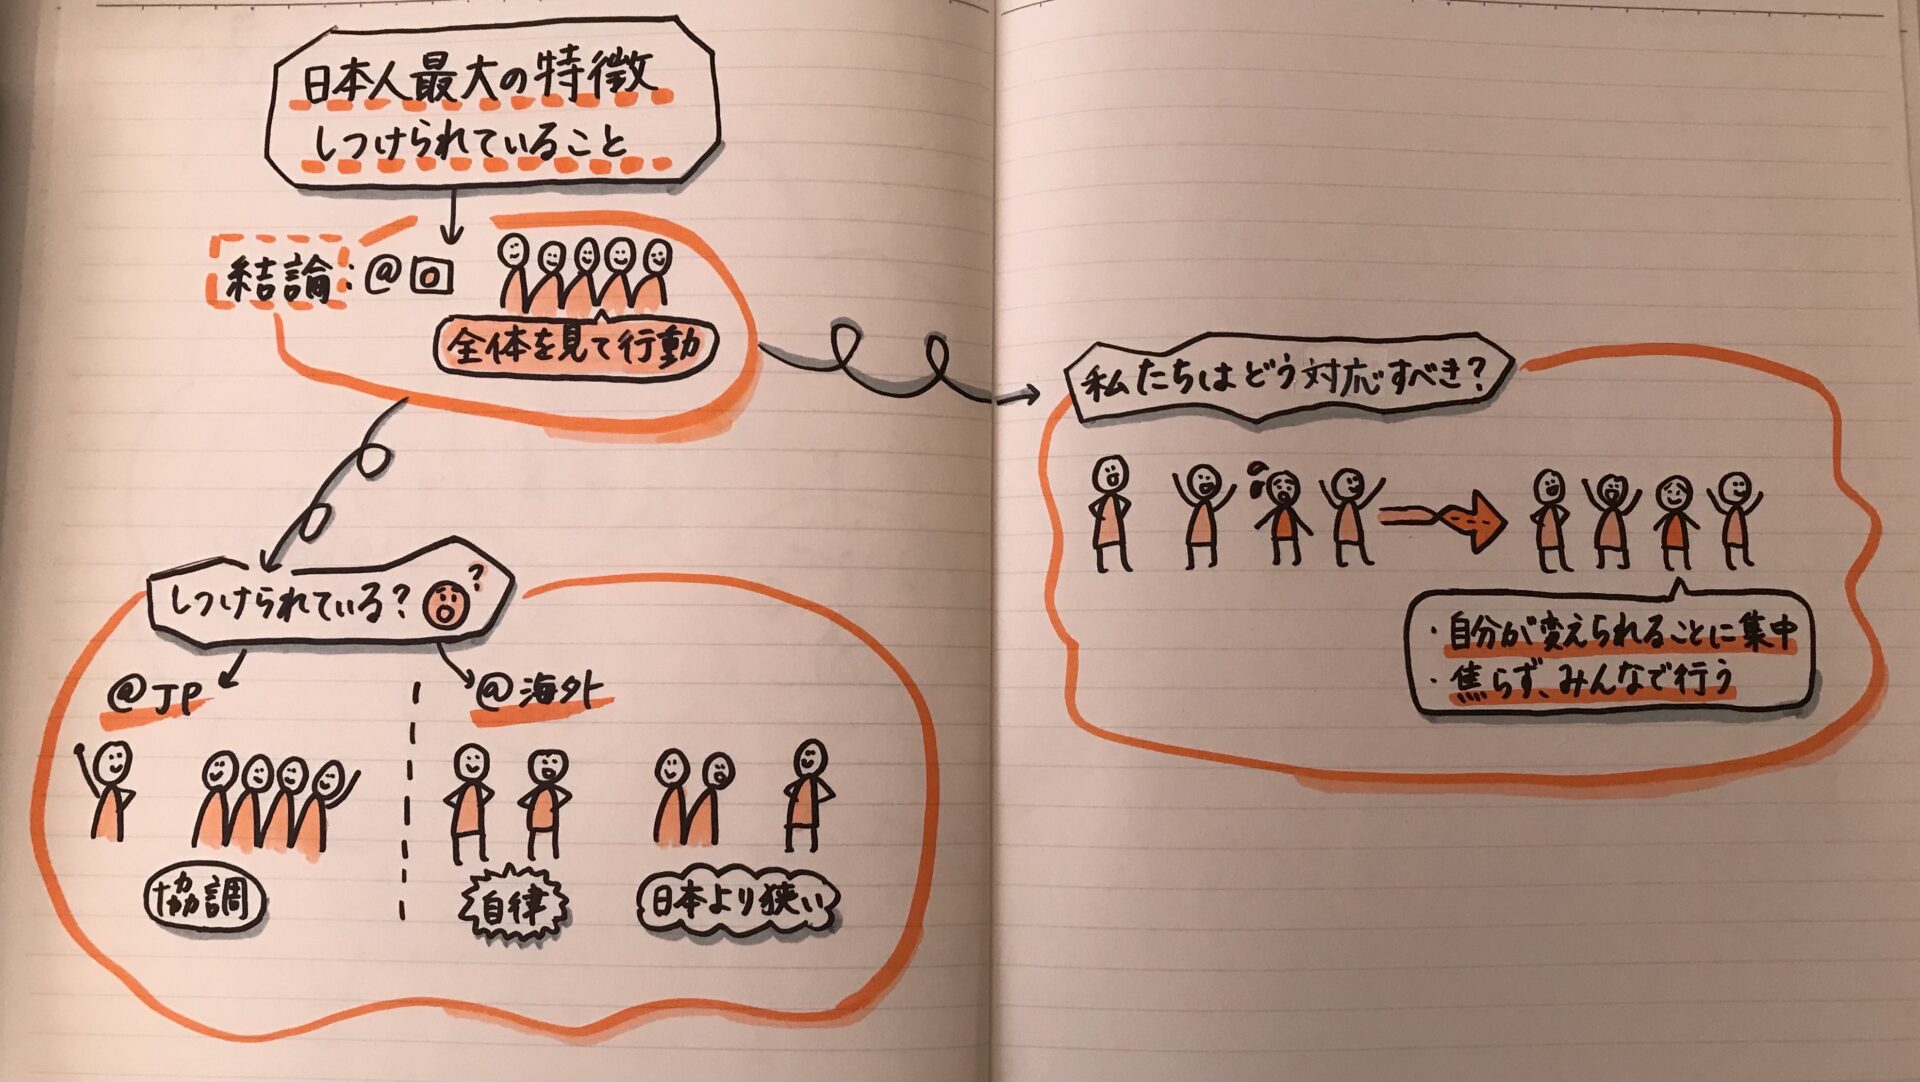 日本人最大の特徴
しつけられていること
結論:@
全体を見て行動
しつけられている?
?
@JP
@海外
協調
自律
日本より狭い
私たちはどう対応すべき?
・自分が変えられることに集中
・焦らず、みんなで行う